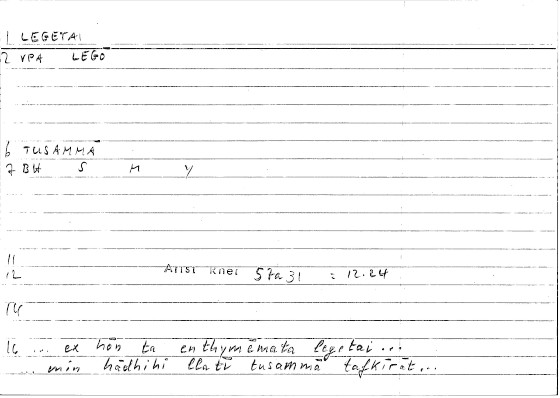 1 LEGETAI
2 VPA LEGŌ
6 TUSAMMĀ
7 BH S M Y
11
12 Arist Rhet 57a31 : 12.24
14
16 ... ex hōn ta enthymēmata legetai ...
... min hādhihi llatī tusammā tafkīrāt...